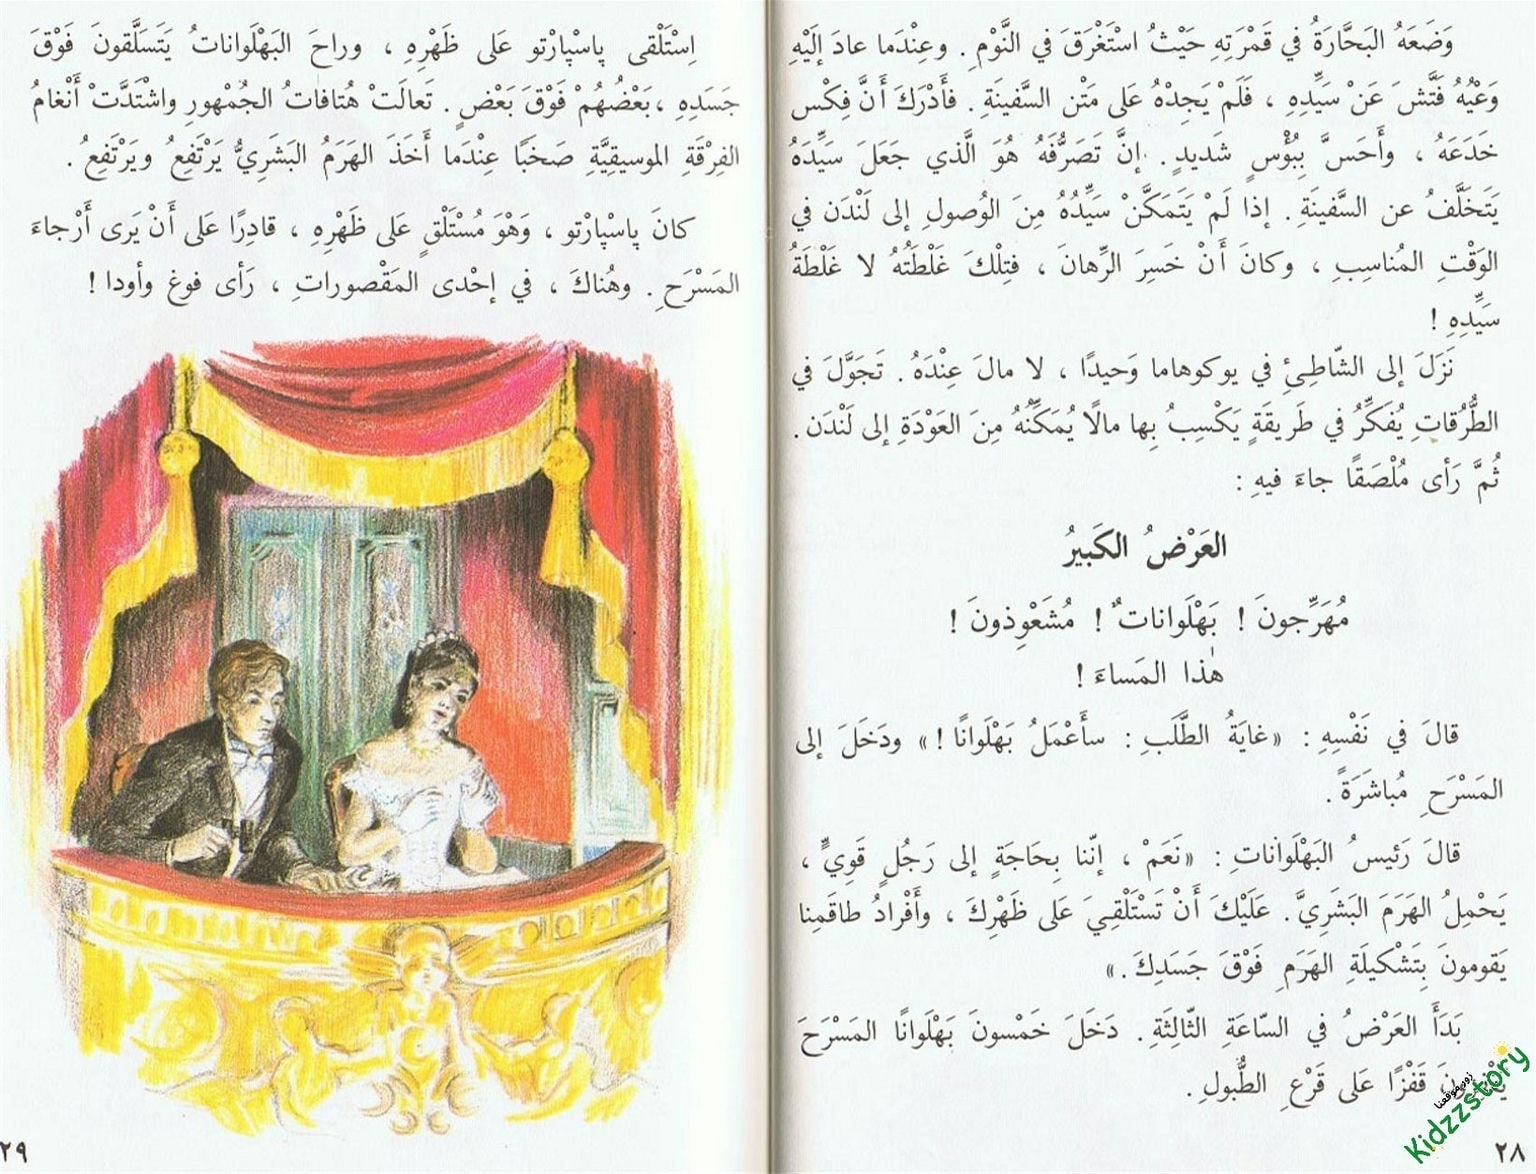 وَضَعَهُ البَحَّارَةُ في قَمْرَتِهِ حَيْثُ اسْتَغْرَقَ في النَّوْمِ . وعِنْدَما عادَ إلَيْهِ
وَعْيُهُ فَتَّشَ عَنْ سَيِّدِهِ ، فَلَمْ يَجِدْهُ عَلى مَتْنِ السَّفينَةِ . فأدْرَكَ أَنَّ فِكْس
خَدَعَهُ ، وأَحَسَّ بِبُؤْسٍ شَديدٍ . إنَّ تَصَرُّفَهُ هُوَ الَّذي جَعَلَ سَيِّدَهُ
يَتَخَلَّفُ عن السَّفينَةِ . إذا لَمْ يَتَمَكَّنْ سَيِّدُهُ مِنَ الوُصولِ إلى لَنْدَن في
الوَقْتِ المُناسِبِ ، وكانَ أَنْ خَسِرَ الرِّهانَ ، فتِلْكَ غَلْطَتُهُ لا غَلْطَةُ
سَيِّدِهِ !
نَزَلَ إلى الشّاطِئِ في يوكوهاما وَحيدًا ، لا مالَ عِنْدَهُ . تَجَوَّلَ في
الطُّرُقاتِ يُفَكِّرُ في طَريقَةٍ يَكْسِبُ بِها مالًا يُمَكِّنُهُ مِنَ العَوْدَةِ إلى لَنْدَن .
ثُمَّ رَأى مُلْصَقًا جاءَ فيهِ :
العَرْضُ الكَبيرُ
مُهَرِّجونَ ! بَهْلَواناتٌ ! مُشَعْوِذونَ !
هٰذا المَساءَ !
قالَ في نَفْسِهِ : «غايَةُ الطَّلَبِ : سأَعْمَلُ بَهْلَوانًا !» ودَخَلَ إلى
المَسْرَحِ مُباشَرَةً .
قالَ رَئيسُ البَهْلَواناتِ : «نَعَمْ ، إنّنا بِحَاجَةٍ إلى رَجُلٍ قَوِيٍّ ،
يَحْمِلُ الهَرَمَ البَشَرِيَّ . عَلَيْكَ أَنْ تَسْتَلْقِيَ عَلى ظَهْرِكَ ، وأَفْرادُ طاقَمِنا
يَقومونَ بِتَشْكيلَةِ الهَرَمِ فَوْقَ جَسَدِكَ .»
بَدَأَ العَرْضُ في السّاعَةِ الثّالِثَةِ . دَخَلَ خَمْسونَ بَهْلَوانًا المَسْرَحَ
قَفْزًا عَلى قَرْعِ الطُّبولِ .
٢٨
زوروا موقعنا
Kidzzstory
اِسْتَلْقى پاسْپارْتو عَلى ظَهْرِهِ ، وراحَ البَهْلَواناتُ يَتَسَلَّقونَ فَوْقَ
جَسَدِهِ ، بَعْضُهُمْ فَوْقَ بَعْضٍ . تَعالَتْ هُتافاتُ الجُمْهورِ واشْتَدَّتْ أَنْغامُ
الفِرْقَةِ الموسيقِيَّةِ صَخَبًا عِنْدَما أَخَذَ الهَرَمُ البَشَرِيُّ يَرْتَفِعُ ويَرْتَفِعُ .
كانَ پاسْپارْتو ، وَهْوَ مُسْتَلْقٍ عَلى ظَهْرِهِ ، قادِرًا عَلى أَنْ يَرى أَرْجاءَ
المَسْرَحِ . وهُناكَ ، في إحْدى المَقْصوراتِ ، رَأى فوغ وأودا !
٢٩